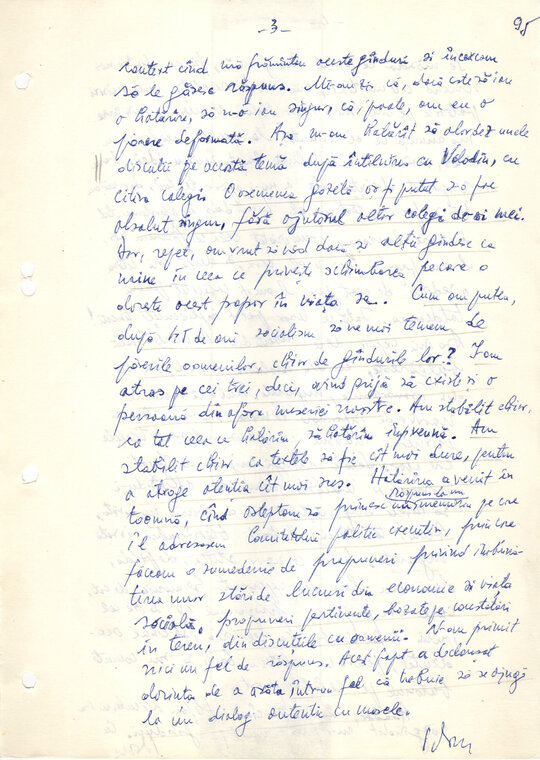 -3-
95
context cînd mă frămîntau aceste gînduri și încercam
să le găsesc răspuns. Mi-am zis că, dacă este să iau
o hotărîre, să n-o iau singur, că, poate, am eu o
părere deformată. Așa m-am hotărît să abordez unele
discuții pe această temă după întîlnirea cu Volodin, cu
cîțiva colegi. O asemenea gazetă aș fi putut s-o fac
absolut singur, fără ajutorul altor colegi de-ai mei.
Dar, repet, am vrut să văd dacă și alții gîndesc ca
mine în ceea ce privește schimbarea pe care o
dorește acest popor în viața sa. Cum am putea,
după 45 de ani socialism să ne mai temem de
părerile oamenilor, chiar de gîndurile lor? I-am
atras pe cei trei, deci, avînd grijă să existe și o
persoană din afara meseriei noastre. Am stabilit chiar,
ca tot ceea ce hotărîm, să hotărîm împreună. Am
stabilit chiar ca textele să fie cît mai dure, pentru
a atrage atenția cît mai sus. Hotărîrea a venit în
toamnă, cînd așteptam să primesc răspuns la un memoriu pe care
îl adresasem Comitetului politic executiv, prin care
făceam o sumedenie de propuneri privind îmbună-
tirea unor stări de lucruri din economie și viața
socială, propuneri pertinente, bazate pe constatări
în teren, din discuțiile cu oamenii. N-am primit
nici un fel de răspuns. Acest fapt a declanșat
dorința de a arăta într-un fel, că trebuie să se ajungă
la un dialog autentic cu masele.